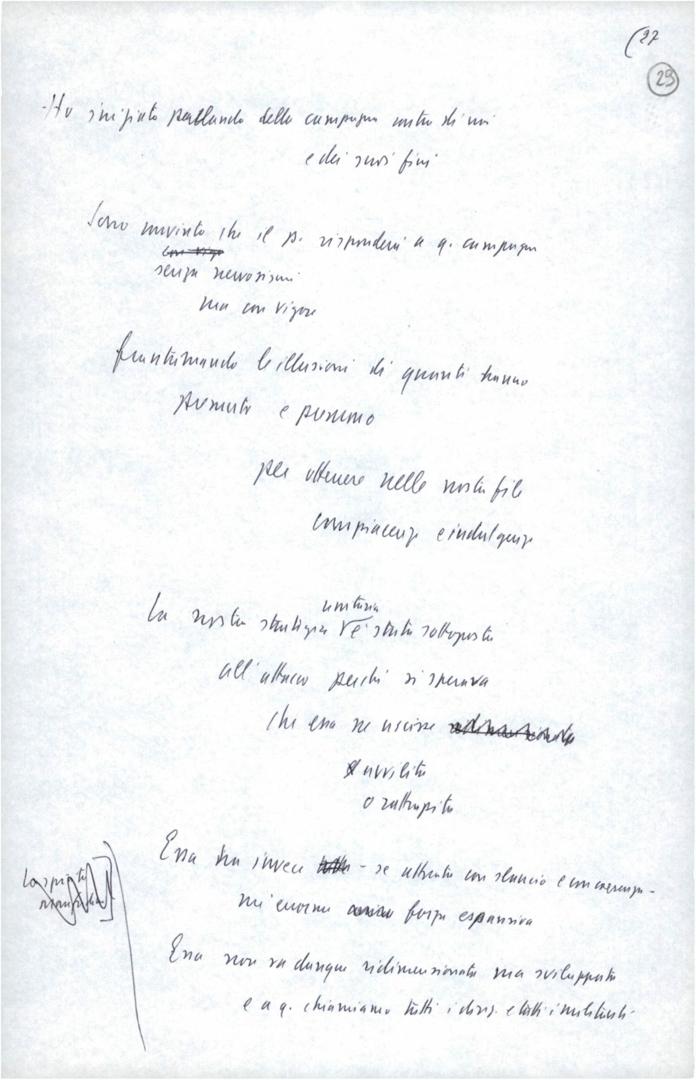 (27
29
- Ho iniziato parlando della campagna contro di noi
e dei suoi fini
Sono convinto che il p. risponderà a q. campagna
senza nervosismi
ma con vigore
frantumando le illusioni di quanti hanno
premuto e premono
per ottenere nelle nostre file
compiacenze e indulgenze
unitaria
La nostra strategia è stata sottoposta
all'attacco perché si sperava
che essa ne uscisse
avvilita
o rattrapita
Essa ha invece - se attuata con slancio e con coerenza -
un'enorme forza espansiva
Essa non va dunque ridimensionata ma sviluppata
e a q. chiamiamo tutti i dirig. e tutti i militanti -
La spinta